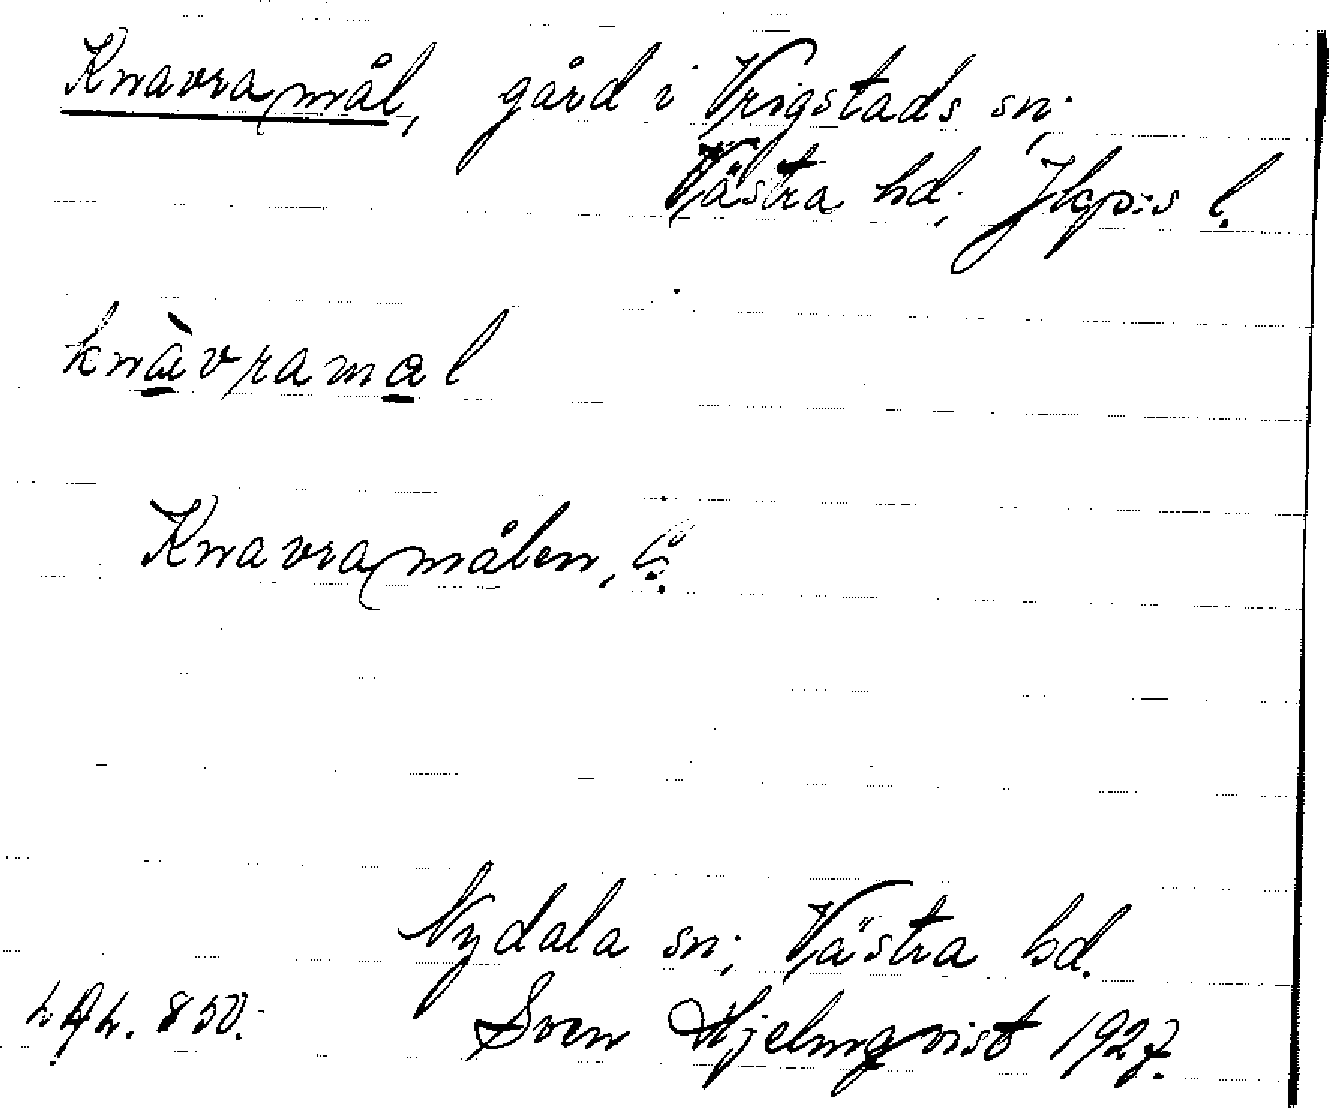 Knavramål, gård i Vrigstads sn;
Västra hd; Jkps l.
knàvramal
Knavramålen,
Nydala sn; Västra hd.
850. Sven Hjelmqvist 1927.